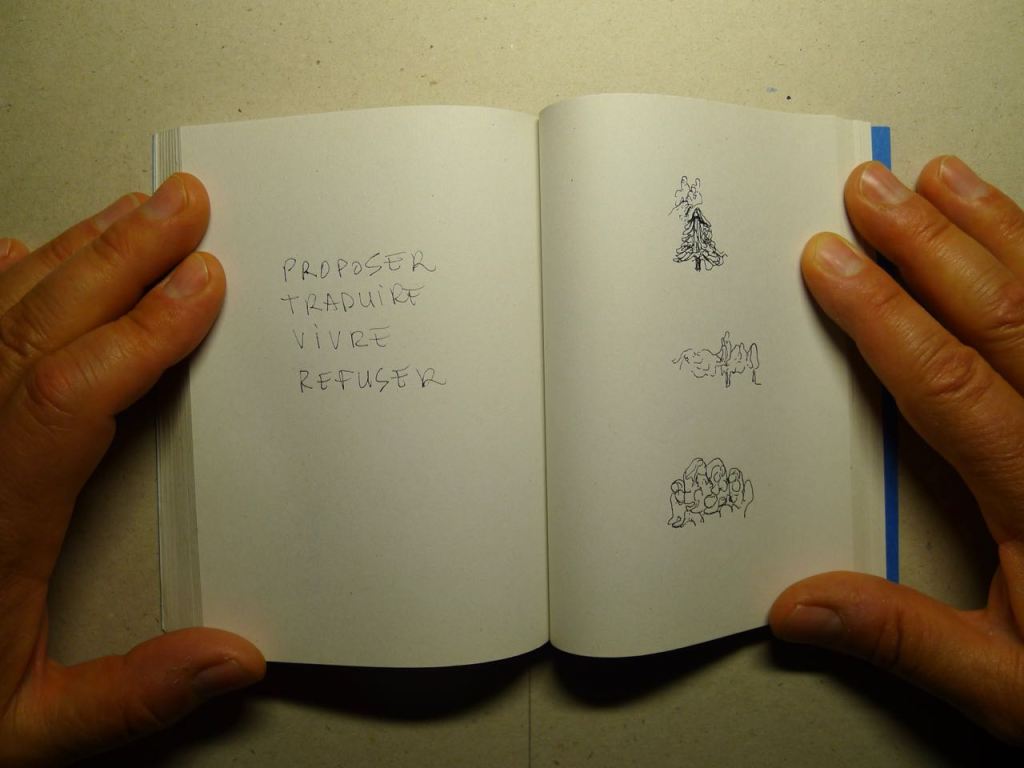 PROPOSER
TRADUIRE
VIVRE
REFUSER